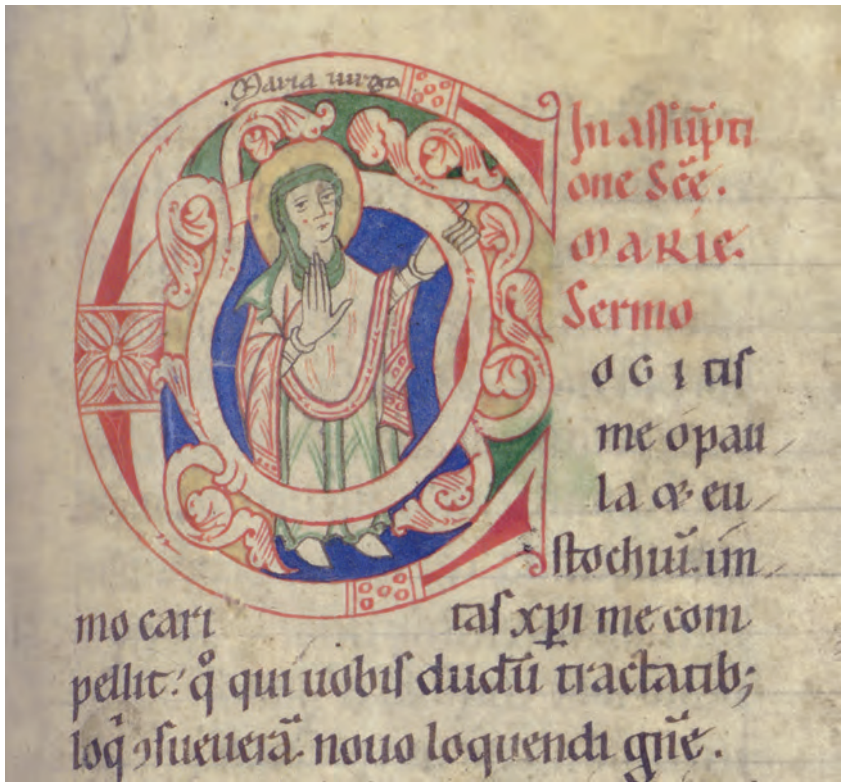 Maria uirgo
In assūpti
one Scē.
MARIE.
Sermo
OGItis
me o pau
la & eu
stochiū. im
mo cari tas xp̄i me com
pellit: q̊ qui uobis dudū tractatib;
loq̇ ꝯsueuerā. nouo loquendi gn̄e.